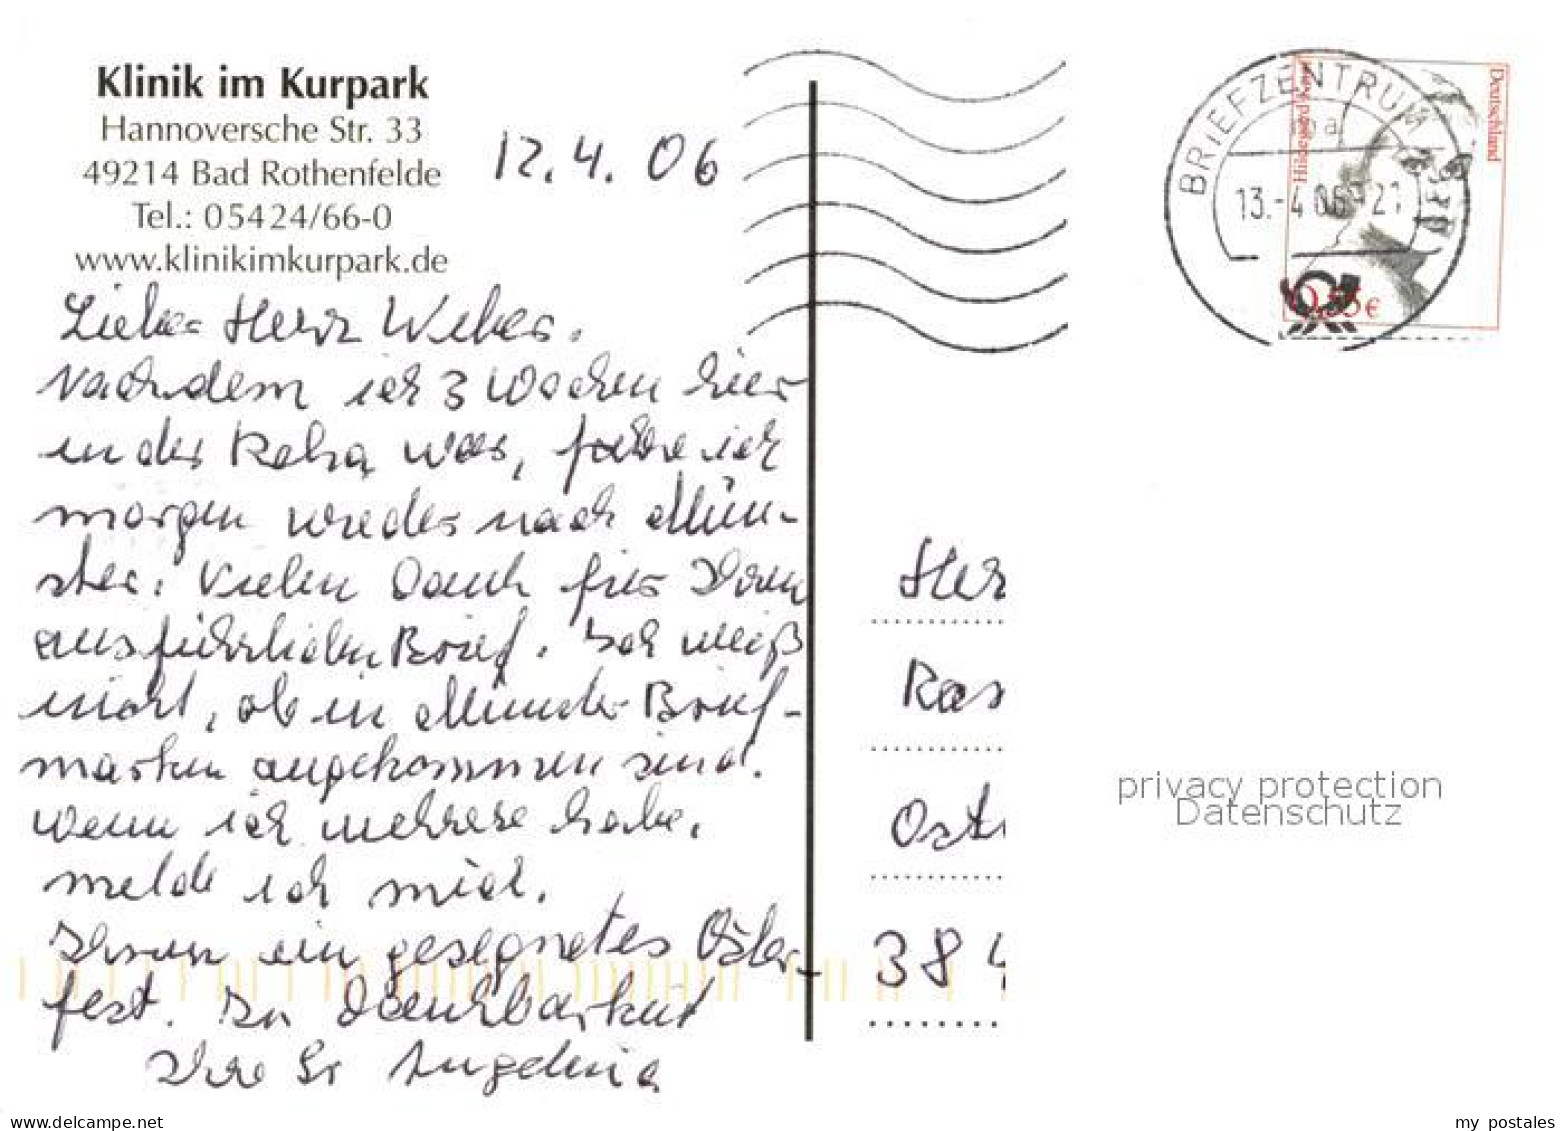 Klinik im Kurpark
Hannoversche Str. 33
49214 Bad Rothenfelde
Tel.: 05424/66-0
www.klinikimkurpark.de
12.4.06
Lieber Herr Weber.
Nachdem ich 3 Wochen hier
in der Reha war, fahre ich
morgen wieder nach Mün-
ster. Vielen Dank für Ihren
ausführlichen Brief. Ich weiß
nicht, ob in Münster Brief-
marken angekommen sind.
Wenn ich mehrere habe,
melde ich mich.
Ihnen ein gesegnetes Oster-
fest. In Dankbarkeit
Ihre Sr Angelina
BRIEFZENTRUM
13.-4.06-21
Hildegard Knef
Deutschland
0,55€
Her
Ras
Ost
38 4
privacy protection
Datenschutz
delcampe.net
my postales